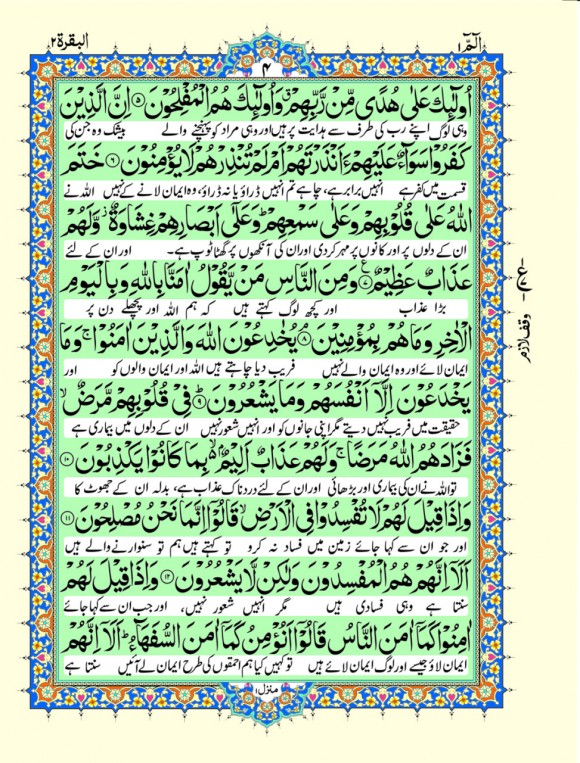 الٓمّٓ ۱
البقرة ۲
۴
اُولٰٓئِكَ عَلٰى هُدًى مِّنْ رَّبِّهِمْ ۗ وَاُولٰٓئِكَ هُمُ الْمُفْلِحُوْنَ ۝۵ اِنَّ الَّذِيْنَ
وہی لوگ اپنے رب کی طرف سے ہدایت پر ہیں اور وہی مراد کو پہنچنے والے بیشک وہ جن کی
كَفَرُوْا سَوَآءٌ عَلَيْهِمْ ءَاَنْذَرْتَهُمْ اَمْ لَمْ تُنْذِرْهُمْ لَا يُؤْمِنُوْنَ ۝۶ خَتَمَ
قسمت میں کفر ہے انہیں برابر ہے، چاہے تم انہیں ڈراؤ یا نہ ڈراؤ، وہ ایمان لانے کے نہیں اللہ نے
اللّٰهُ عَلٰى قُلُوْبِهِمْ وَعَلٰى سَمْعِهِمْ ؕ وَعَلٰٓى اَبْصَارِهِمْ غِشَاوَةٌ ۫ وَّلَهُمْ
ان کے دلوں پر اور کانوں پر مہر کردی اور ان کی آنکھوں پر گھٹاٹوپ ہے۔ اور ان کے لئے
عَذَابٌ عَظِيْمٌ ۝۷ وَمِنَ النَّاسِ مَنْ يَّقُوْلُ اٰمَنَّا بِاللّٰهِ وَبِالْيَوْمِ
بڑا عذاب اور کچھ لوگ کہتے ہیں کہ ہم اللہ اور پچھلے دن پر
الْاٰخِرِ وَمَا هُمْ بِمُؤْمِنِيْنَ ۝۸ يُخٰدِعُوْنَ اللّٰهَ وَالَّذِيْنَ اٰمَنُوْا ۚ وَمَا
ایمان لائے اور وہ ایمان والے نہیں فریب دیا چاہتے ہیں اللہ اور ایمان والوں کو اور
يَخْدَعُوْنَ اِلَّآ اَنْفُسَهُمْ وَمَا يَشْعُرُوْنَ ۝۹ فِيْ قُلُوْبِهِمْ مَّرَضٌ ۙ
حقیقت میں فریب نہیں دیتے مگر اپنی جانوں کو اور انہیں شعور نہیں ان کے دلوں میں بیماری ہے
فَزَادَهُمُ اللّٰهُ مَرَضًا ۚ وَلَهُمْ عَذَابٌ اَلِيْمٌۢ ۙ بِمَا كَانُوْا يَكْذِبُوْنَ ۝۱۰
تو اللہ نے ان کی بیماری اور بڑھائی اور ان کے لئے دردناک عذاب ہے، بدلہ ان کے جھوٹ کا
وَاِذَا قِيْلَ لَهُمْ لَا تُفْسِدُوْا فِي الْاَرْضِ ۙ قَالُوْٓا اِنَّمَا نَحْنُ مُصْلِحُوْنَ ۝۱۱
اور جو ان سے کہا جائے زمین میں فساد نہ کرو تو کہتے ہیں ہم تو سنوارنے والے ہیں
اَلَآ اِنَّهُمْ هُمُ الْمُفْسِدُوْنَ وَلٰكِنْ لَّا يَشْعُرُوْنَ ۝۱۲ وَاِذَا قِيْلَ لَهُمْ
سنتا ہے وہی فسادی ہیں مگر انہیں شعور نہیں، اور جب ان سے کہا جائے
اٰمِنُوْا كَمَآ اٰمَنَ النَّاسُ قَالُوْٓا اَنُؤْمِنُ كَمَآ اٰمَنَ السُّفَهَآءُ ؕ اَلَآ اِنَّهُمْ
ایمان لاؤ جیسے اور لوگ ایمان لائے ہیں تو کہیں کیا ہم احمقوں کی طرح ایمان لے آئیں سنتا ہے
منزل ۱
وقف لازم